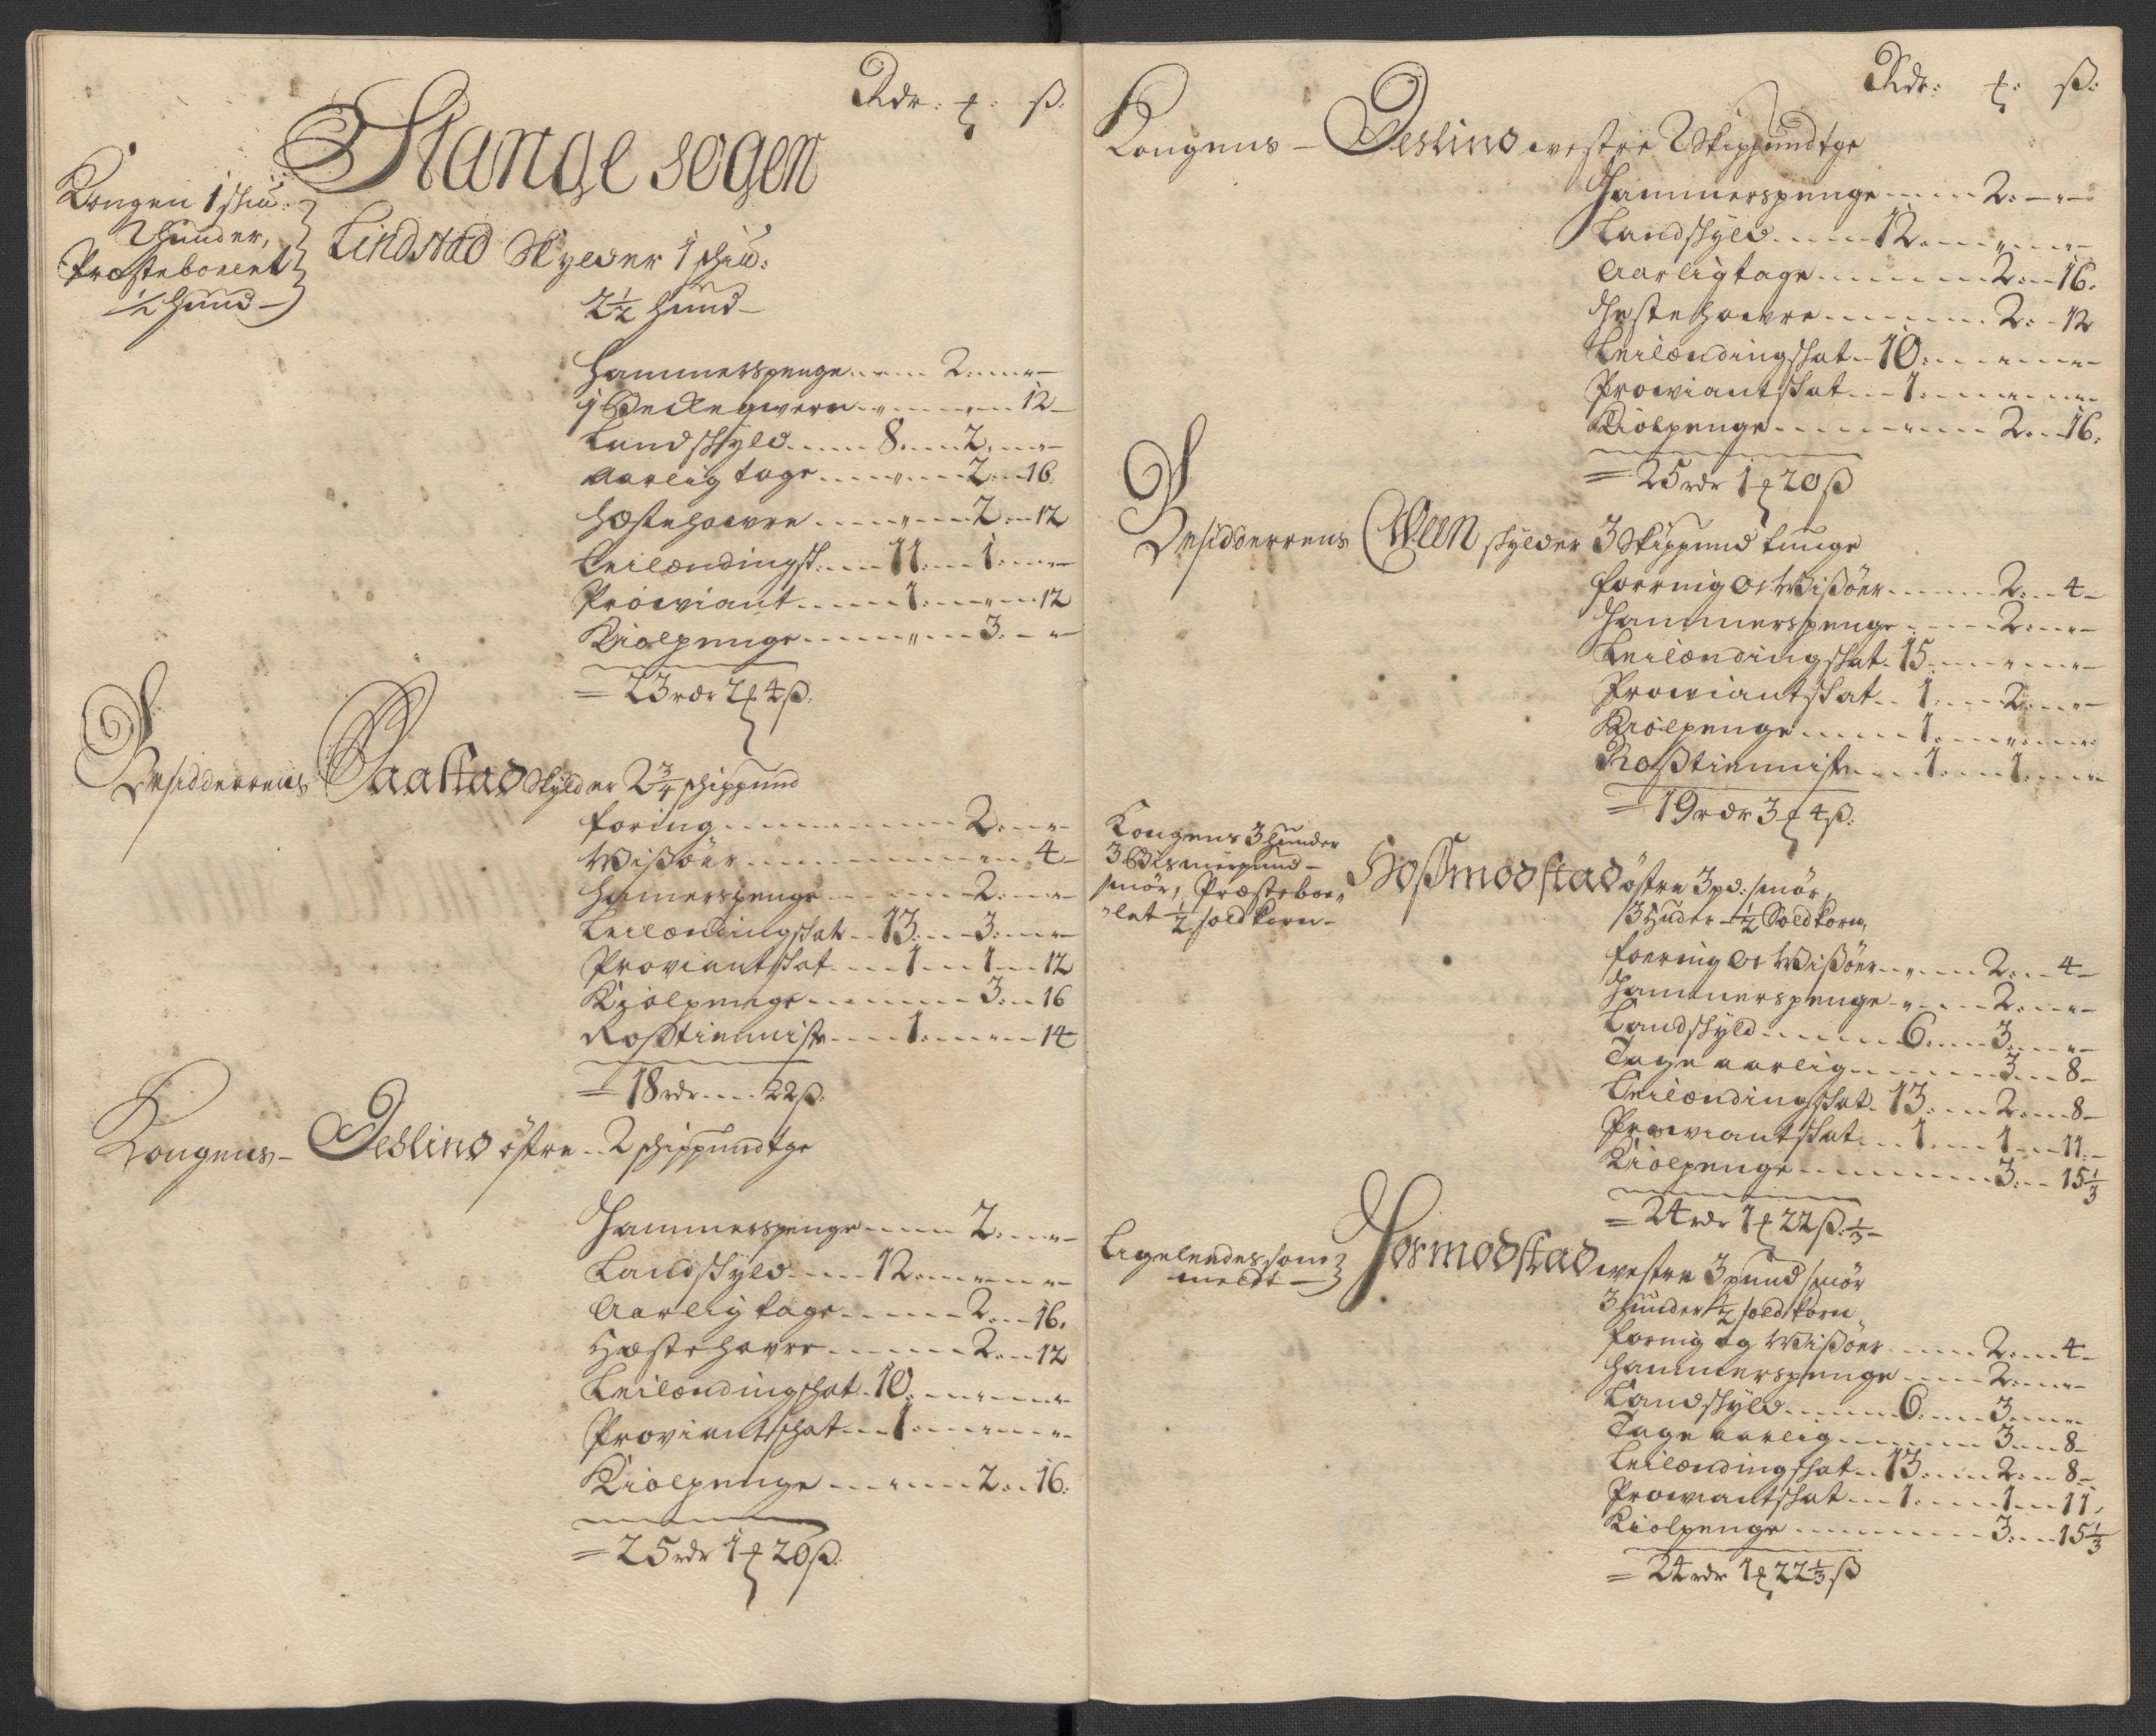 Rdr: ß:
Stange sogen
Kongen 1 shu:
2 hunder,
Præstebolet
½ hund –
Lindstad Skylder 1 shu:
2½ hund –
Hammerspenge .. " .. 2 .. " –
1 Beckeqwern .. " .. " .. 12 –
Landskyld .. 8 .. 2 .. " –
Aarlig tage .. " .. 2 .. 16.
Hæstehavre .. " .. 2 .. 12
Leilændingsk: .. 11 .. 1 .. " –
Prowiant .. 1 .. " .. 12
Kiølpenge .. " .. 3. – " –
= 23 rdr 2 4 ß.
Besidderens Saastad Skylder 2¾ schippund
foring .. 2 .. " –
Wisøer .. " .. 4 –
Hamerspenge .. 2 .. " –
Leilændingskat .. 13 .. 3 .. " –
Proviantskat .. 1 .. 1 .. 12
Kiølpenge .. 3 .. 16
Rostienniste .. 1 .. " .. 14
= 18 rdr .. 22 ß.
Kongens – Jeslind østre .. 2 schippund tge
Hammerspenge .. 2 .. " –
Landskyld .. 12 .. " .. " –
Aarlig tage .. 2 .. 16.
Hæstehavre .. 2 .. 12
Leilændingskat .. 10 .. " .. " –
Proviantskat .. 1 .. " .. " –
Kiølpenge .. " .. 2 .. 16.
= 25 rdr 1 20 ß.
Rdr: ß:
Kongens – Jeslind westre 2 Skippund tge
Hammerspenge .. 2. – " –
Landskyld .. 12 .. " .. " –
Aarlig tage .. 2 .. 16.
Hestehawre .. 2. – 12
Leilændingskat .. 10 .. " .. " –
Prowiantskat .. 1 .. " .. " –
Kiølpenge .. " .. 2 .. 16.
= 25 rdr 1 20 ß
Besidderens Ween skylder 3 Skippund tunge
forring oc Wisøer .. 2 .. 4 –
Hammerspenge .. 2 .. " –
Leilændingskat .. 15 .. " .. " –
Prowiantskat .. 1 .. 2 .. " –
Kiølpenge .. 1 .. " .. " –
Rostienniste .. 1 .. 1 .. " –
= 19 rdr 3 4 ß.
Kongens 3 hunder
3 Bismerpund –
smør, Præstebo-
let ½ sold korn –
Hosmodstad østre 3 pd: smør,
3 Huder – ½ Sold korn,
foering oc Wisøer .. " .. 2 .. 4 –
Hammerspenge .. " .. 2 .. " –
Landskyld .. 6 .. 3 .. " –
Tage aarlig .. 3 .. 8 –
Leilændingskat .. 13 .. 2 .. 8 –
Prowiantskat .. 1 .. 1 .. 11. –
Kiølpenge .. 3 .. 15⅓
= 24 rdr 1 22 ß. ⅓ –
Ligeledes som
meldt –
Hosmodstad westre 3 pund smør
3 hunder ½ sold korn
foring og Wisøer .. 2 .. 4 –
Hammerspenge .. 2 .. " –
Landskyld .. 6 .. 3 .. " –
Tage aarlig .. 3 .. 8 –
Leilændingskat .. 13 .. 2 .. 8 –
Prowiantskat .. 1 .. 1 .. 11,
Kiolpenge .. 3 .. 15⅓
= 24 rdr 1 22⅓ ß